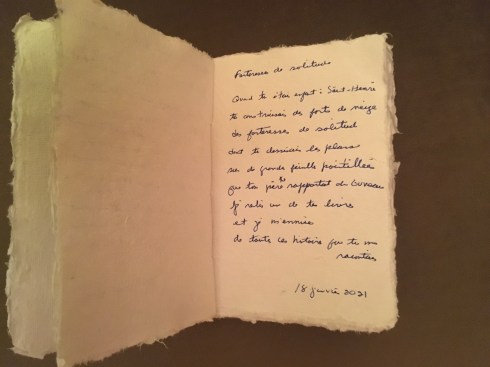 Forteresse de solitude
Quand tu étais enfant à Saint-Henri
tu construisais des forts de neige
des forteresses de solitude
dont tu dessinais les plans
sur de grandes feuilles pointillées
que ton père te rapportait du bureau
je relis un de tes livres
et je m'ennuie
de toutes ces histoires que tu me
racontais
18 janvier 2021